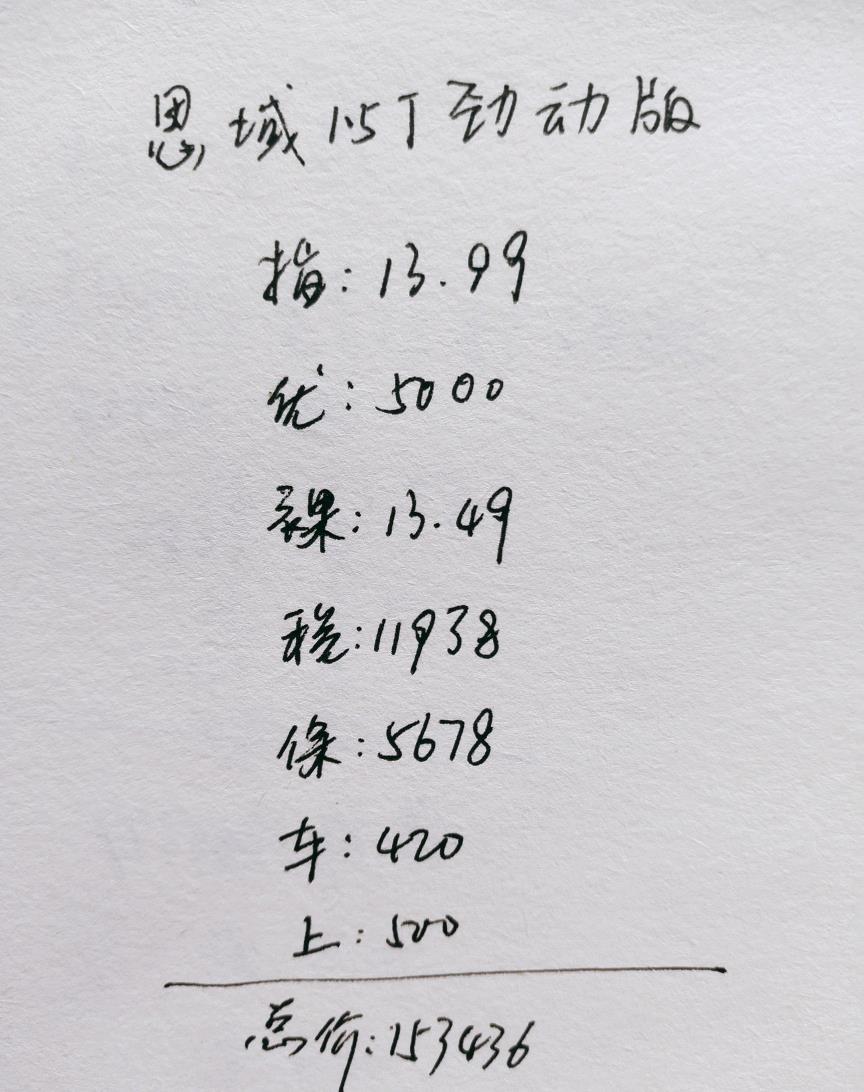 思域 1.5T 劲动版
指:13.99
优:5000
裸:13.49
税:11938
保:5678
车:420
上:500
总价:153436